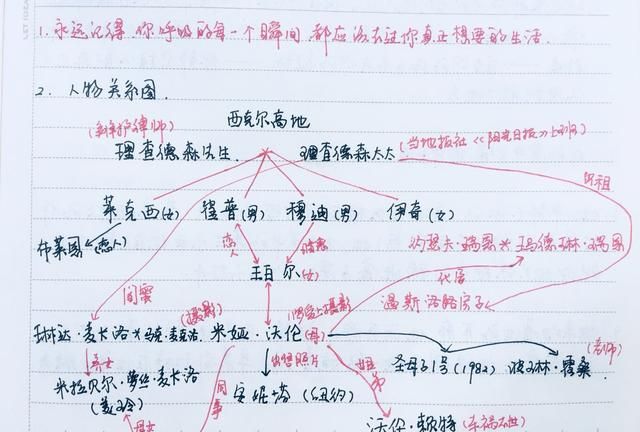 1. 永远记得,你呼吸的每一个瞬间,都应该去过你真正想要的生活.
2. 人物关系图.
西克尔高地
(辩护律师)
理查德森先生. 理查德森太太 (当地报社《阳光日报》上班)
出租
莱克西(女) 崔普(男) 穆迪(男) 伊奇(女)
布莱恩(恋人) 恋人 暗恋 约瑟夫·瑞恩 × 玛德琳·瑞恩
珀尔(女)
代孕
闺蜜 温斯洛路房子
(摄影) (酷爱上摄影)
琳达·麦卡洛×马克·麦卡洛. 米娅·沃伦(母) (老师)
养女 出售照片 姐弟 圣母子1号(1982) 波琳·霍桑
米拉贝尔·萝丝·麦卡洛 同事 安妮塔 (纽约)
(美玲)
母女 沃伦·赖特 (车祸去世)